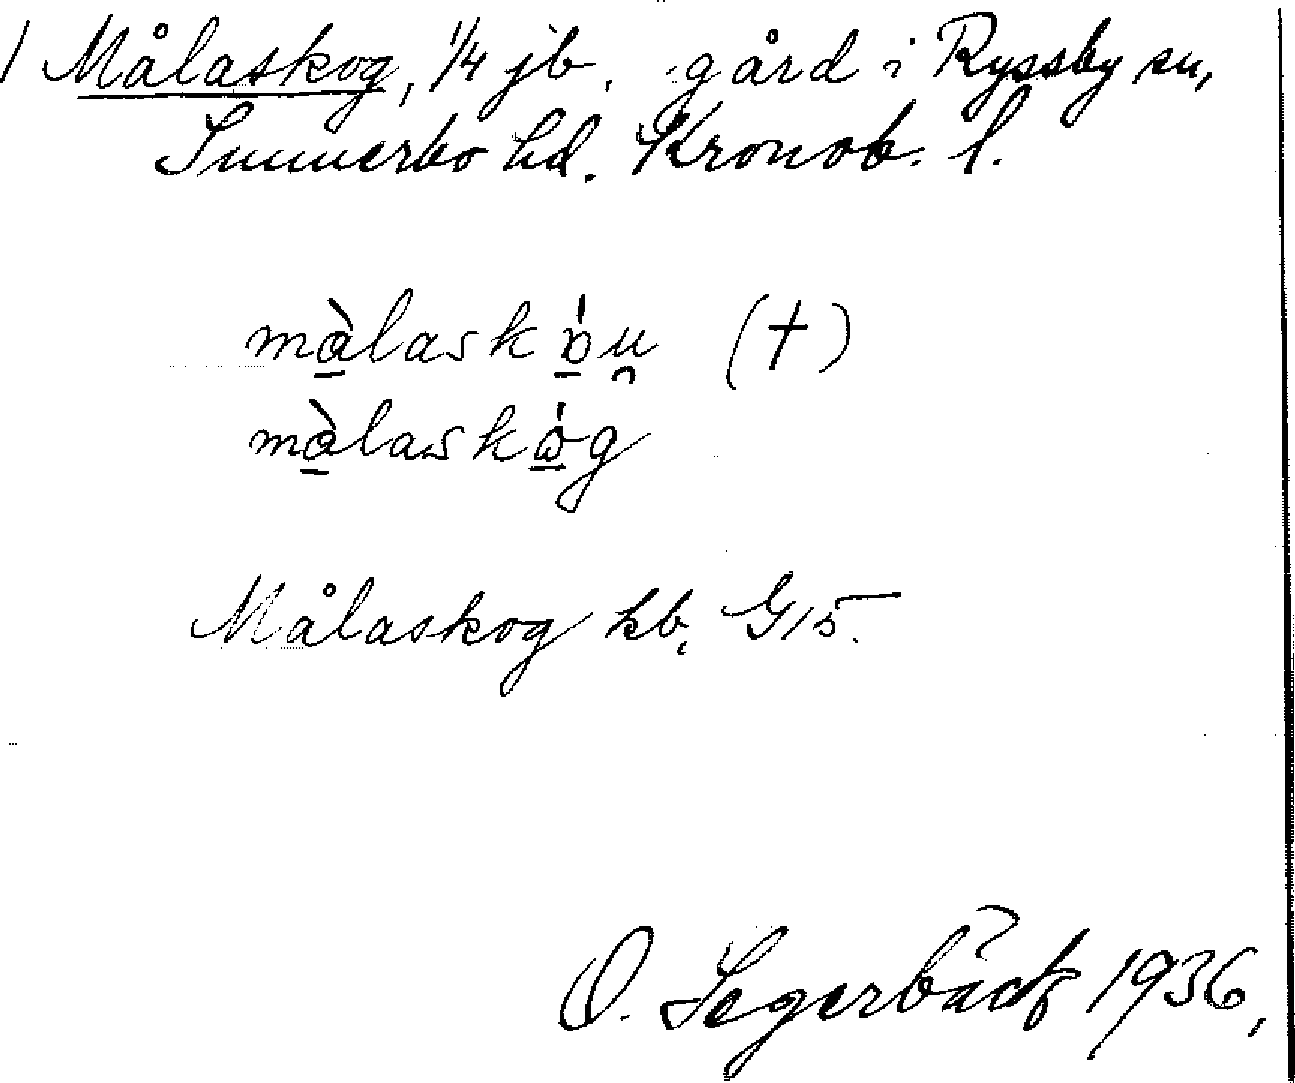 1 Målaskog, 1/4 jb. gård i Ryssby sn,
Sunnerbo hd. Kronob. l.
mòlaskóu (†)
mòlaskóg
Målaskog kb. G15.
O. Segerbäck 1936,